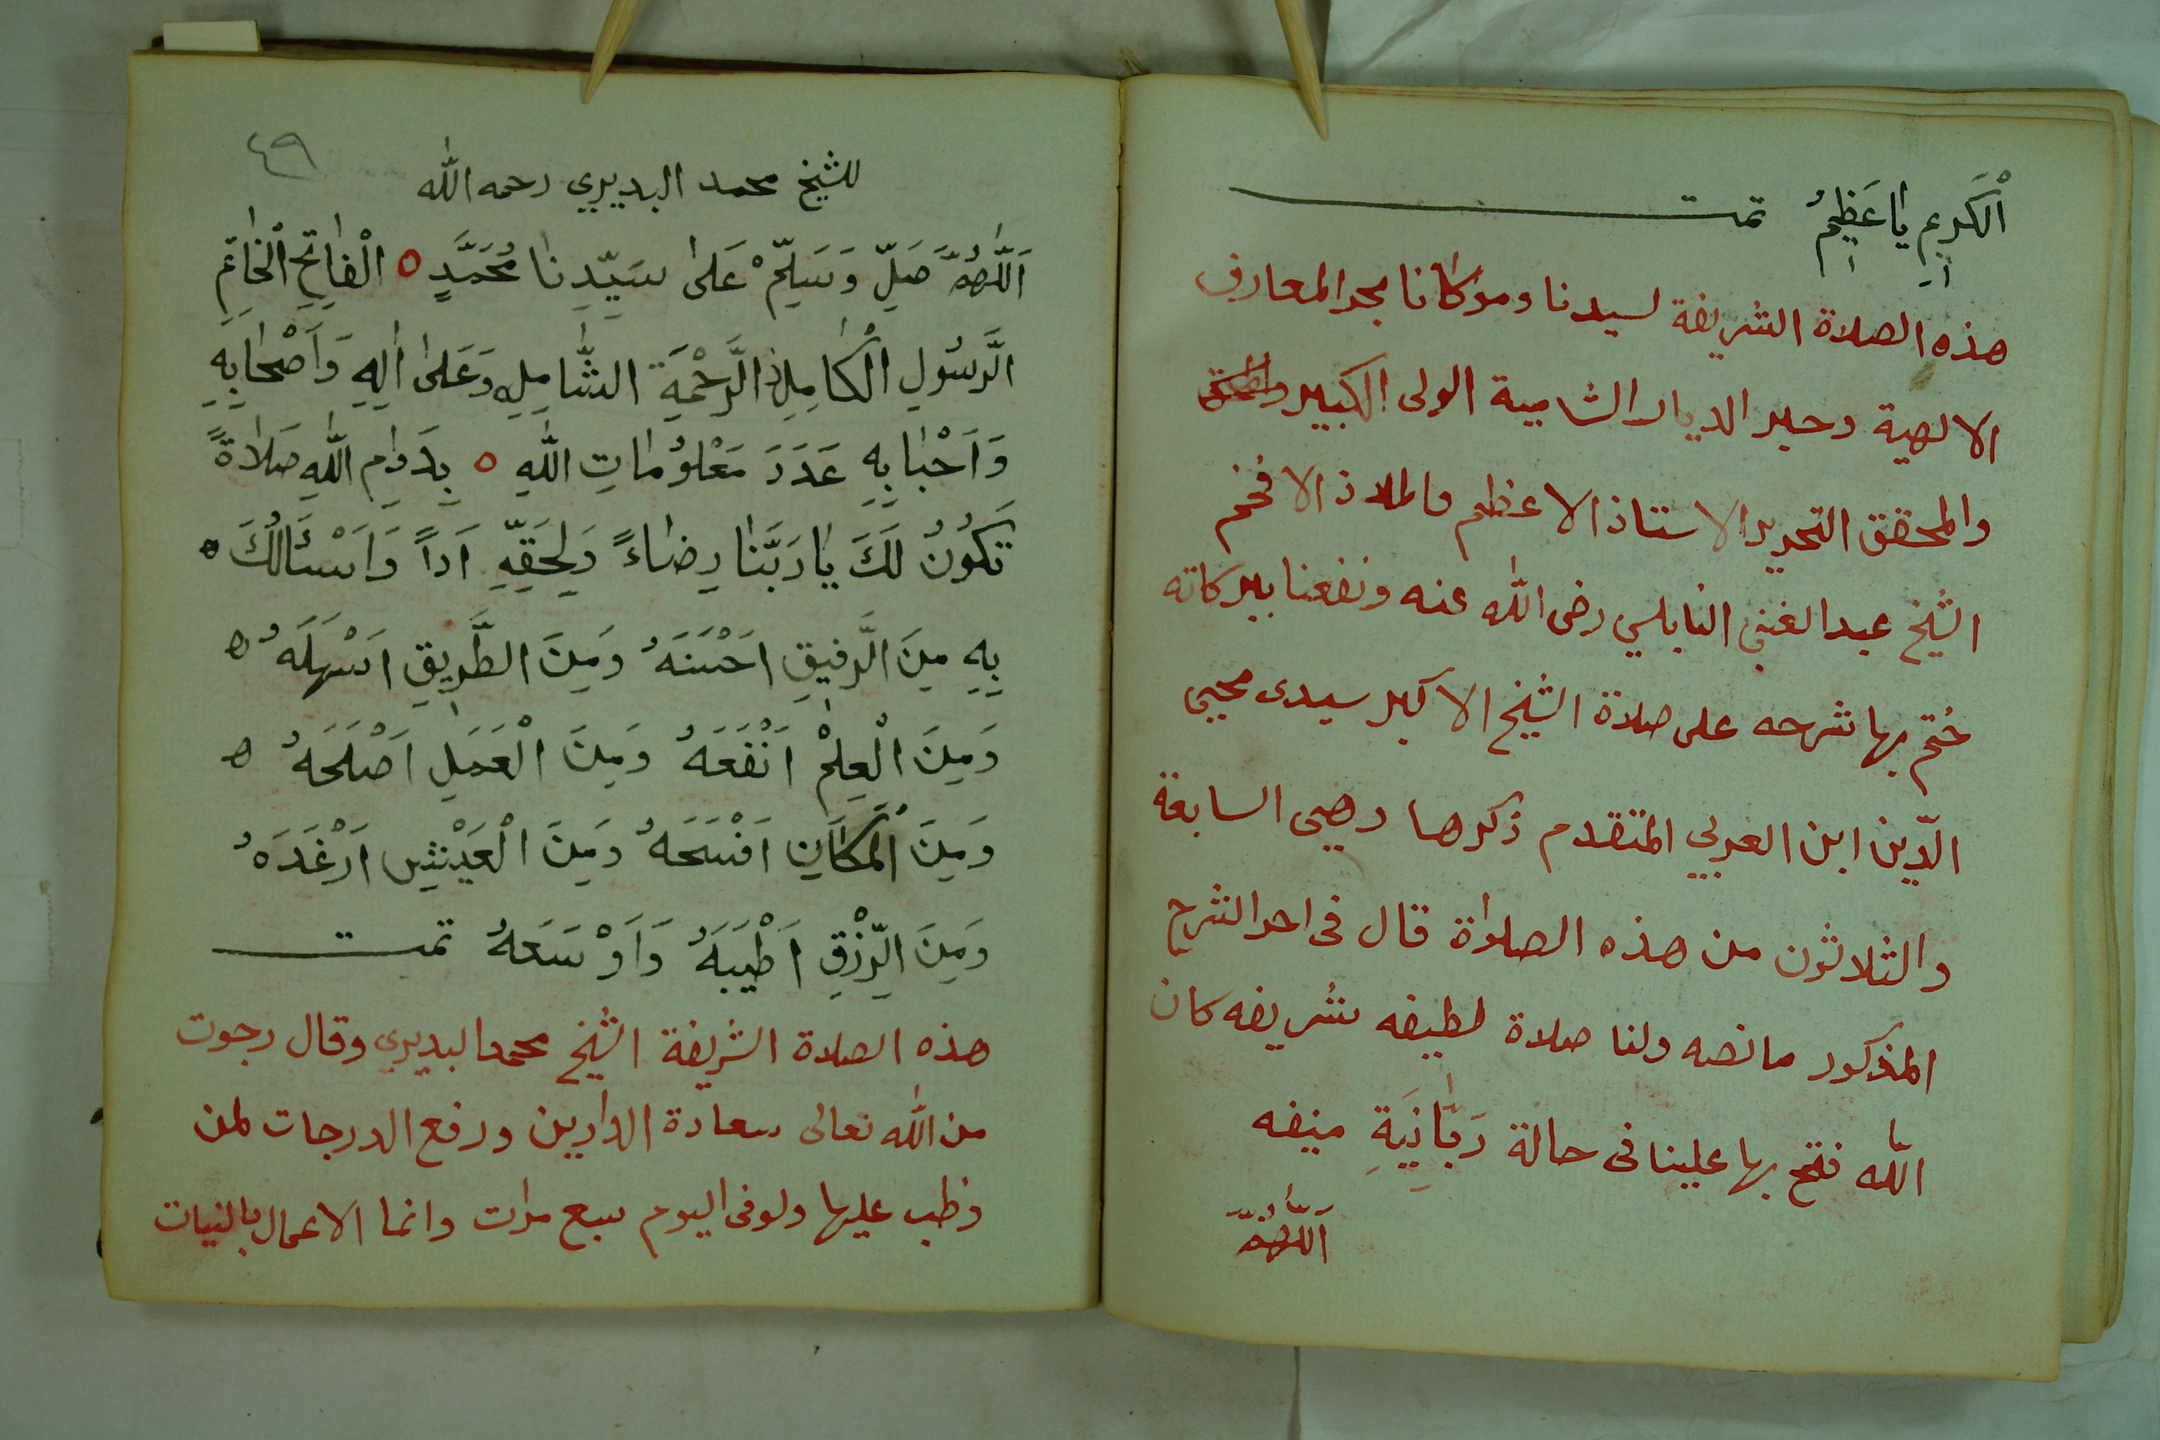 اَلْكَرِيمِ يَا عَظِيمُ تمت
هذه الصلاة الشريفة لسيدنا ومولانا بحر المعارف
الالهية وحبر الديار الشامية الولى الكبير
والمحقق النحرير الاستاذ الاعظم والملاذ الافخم
الشيخ عبد الغني النابلسي رضى الله عنه ونفعنا ببركاته
ختم بها شرحه على صلاة الشيخ الاكبر سيدى محيي
الدّين ابن العربي المتقدم ذكرها وهي السابعة
والثلاثون من هذه الصلواة قال فى اخر الشرح
المذكور ما نصه ولنا صلاة لطيفه شريفه كان
الله فتح بها علينا فى حالة رَبَّانِيَةِ منيفه
اَللّٰهُمَّ
٤٩
للشيخ محمد البديري رحمه الله
اَللّٰهُمَّ صَلِّ وَسَلِّمْ عَلىٰ سَيِّدِنَا مُحَمَّدٍ الْفَاتِحِ الْخَاتِمِ
الرَّسُولِ الْكَامِلِ الرَّحْمَةِ الشَّامِلِ وَعَلىٰ اٰلِهِ وَاَصْحَابِهِ
وَاَحْبَابِهِ عَدَدَ مَعْلُومَاتِ اللّٰهِ بِدَوَامِ اللّٰهِ صَلَاةً
تَكُونُ لَكَ يَا رَبَّنَا رِضَاءً وَلِحَقِّهِ اَداً وَاَسْئَالُكَ
بِهِ مِنَ الرَّفِيقِ اَحْسَنَهُ وَمِنَ الطَّرِيقِ اَسْهَلَهُ
وَمِنَ الْعِلْمِ اَنْفَعَهُ وَمِنَ الْعَمَلِ اَصْلَحَهُ
وَمِنَ الْمَكَانِ اَفْسَحَهُ وَمِنَ الْعَيْشِ اَرْغَدَهُ
وَمِنَ الرِّزْقِ اَطْيَبَهُ وَاَوْسَعَهُ تمت
هذه الصلاة الشريفة الشيخ محمد البديري وقال رجوت
من الله تعالى سعادة الدارين ورفع الدرجات لمن
وظب عليها ولو فى اليوم سبع مرات وانما الاعمال بالنيات